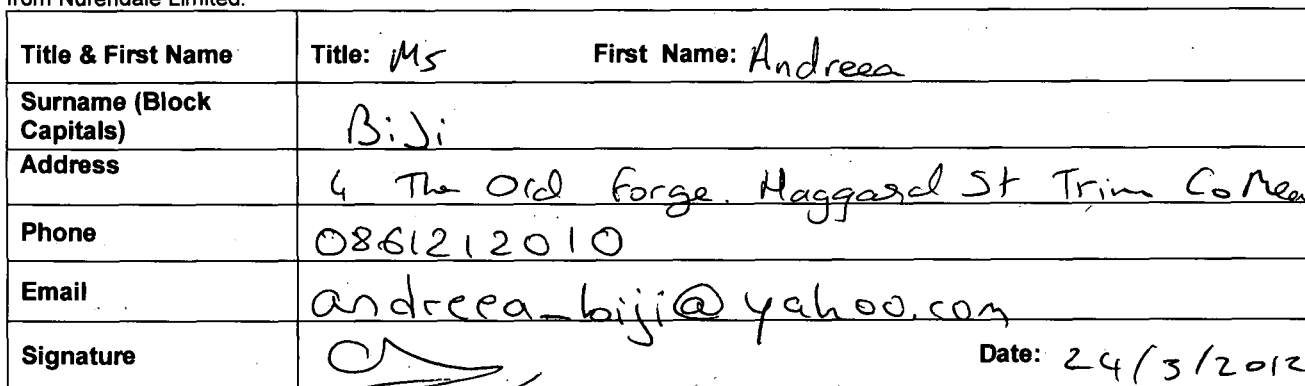 from Nurendale Limited.
Title & First Name Title: Ms First Name: Andreea
Surname (Block Capitals) BiJi
Address 4 The Old Forge. Haggard St Trim Co Mea
Phone 0861212010
Email andreea_biji@yahoo.com
Signature Date: 24/3/2012